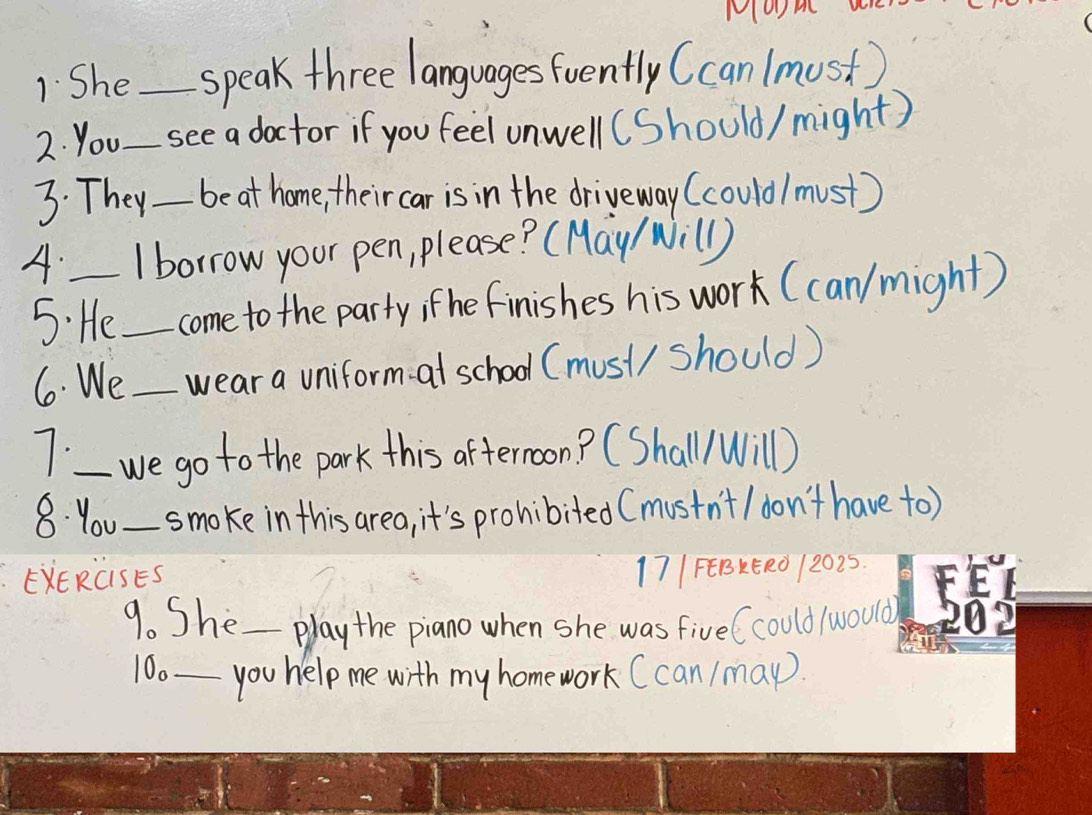 1. She __ speak three languages fuently (can/must)
2. You __ see a doctor if you feel unwell (Should/might)
3. They __ be at home, their car is in the driveway (could/must)
4. __ I borrow your pen, please? (May/Will)
5. He __ come to the party if he finishes his work (can/might)
6. We __ wear a uniform at school (must/should)
7. __ we go to the park this afternoon? (Shall/Will)
8. You __ smoke in this area, it's prohibited (mustn't/don't have to)
EXERCISES 17/FEBRERO/2025.
9. She __ play the piano when she was five (could/would)
10. __ you help me with my homework (can/may).